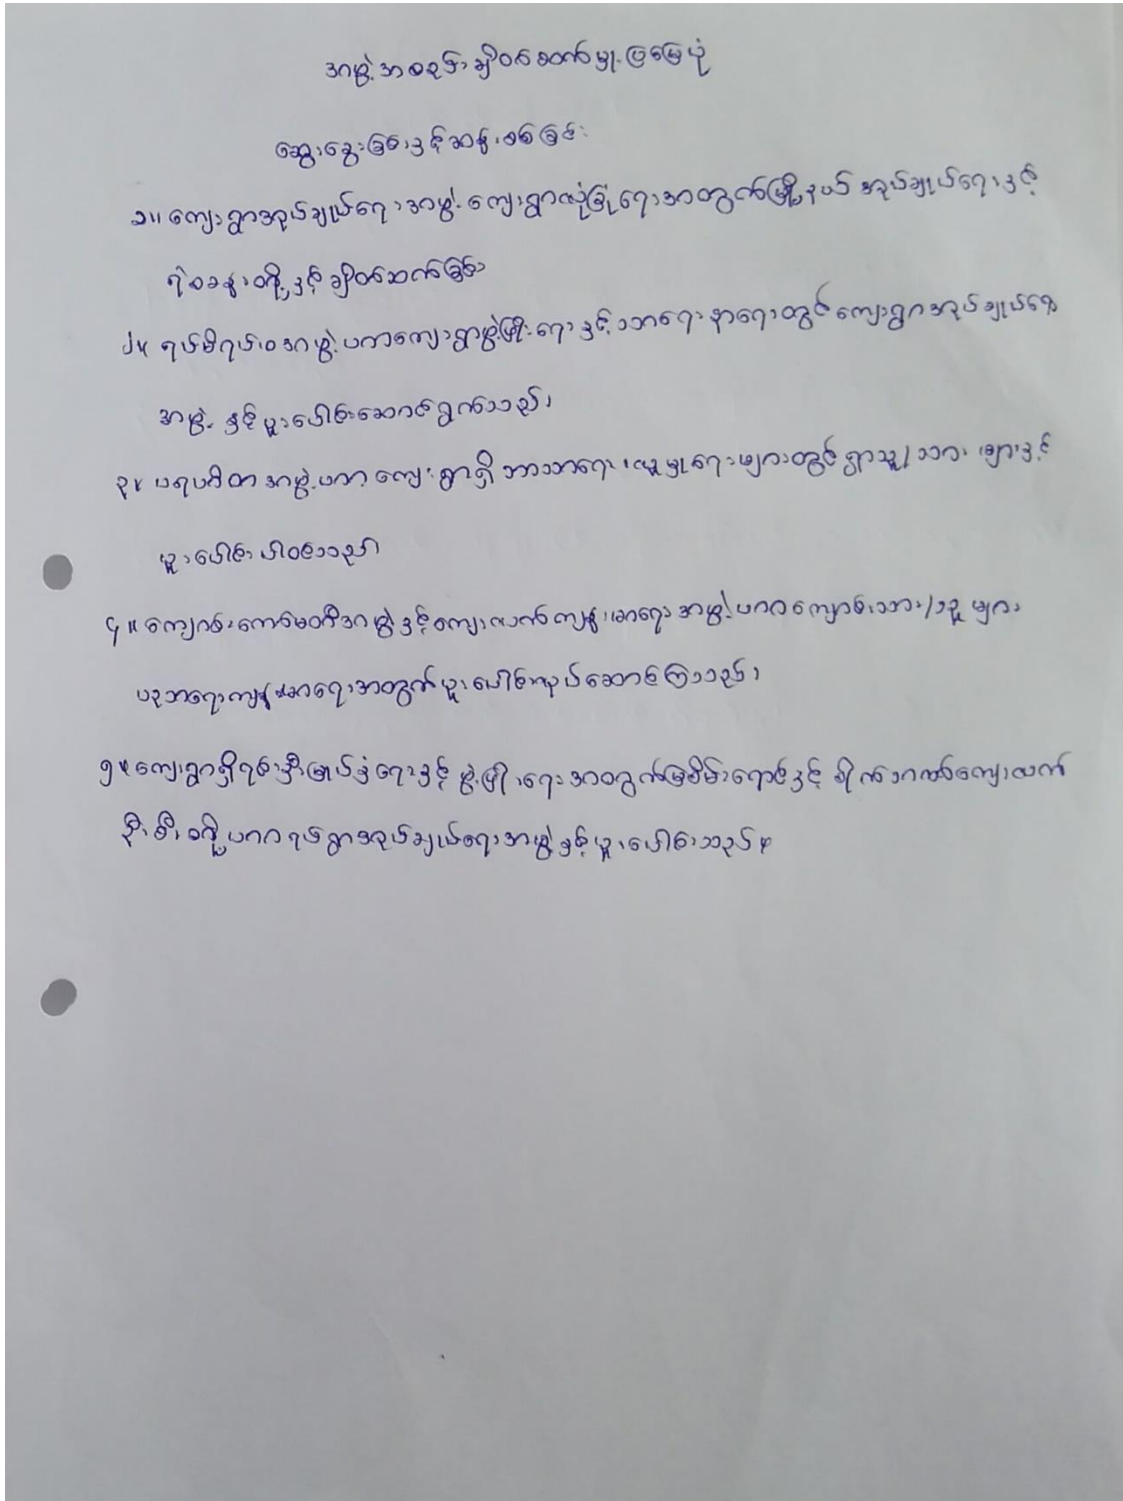 အဖွဲ့အစည်းချိတ်ဆက်မှုပြမြေပုံ
ဆွေးနွေးခြင်းနှင့်ဆန်းစစ်ခြင်း
၁။ ကျေးရွာအုပ်ချုပ်ရေးအဖွဲ့ ကျေးရွာလုံခြုံရေးအတွက်မြို့နယ် အုပ်ချုပ်ရေးနှင့်
ရဲစခန်းတို့နှင့်ချိတ်ဆက်ခြင်း
၂။ ရပ်မိရပ်ဖအဖွဲ့ ပကာကျေးရွာဖွံ့ဖြိုးရေးနှင့်သာရေးနာရေးတွင်ကျေးရွာအုပ်ချုပ်ရေး
အဖွဲ့ နှင့်ပူးပေါင်းဆောင်ရွက်သည်၊
၃။ ပရဟိတအဖွဲ့ပကာ ကျေးရွာရှိဘာသာရေး၊လူမှုရေးများတွင်ရွာသူ/သား များနှင့်
ပူးပေါင်းပါဝင်သည်၊
၄။ ကျောင်းကော်မတီအဖွဲ့နှင့်ကျေးလက်ကျန်းမာရေးအဖွဲ့ပကာကျောင်းသား/သူများ
ပညာရေးကျန်းမာရေးအတွက်ပူးပေါင်းလုပ်ဆောင်ကြသည်၊
၅။ ကျေးရွာရှိရင်းနှီးမြှုပ်နှံရေးနှင့် ဖွံ့ဖြိုးရေးအတွက်မြစိမ်းရောင်နှင့် စိုက်သက်ကျေးလက်
ဦးစီးတို့ပကာရပ်ရွာအုပ်ချုပ်ရေးအဖွဲ့နှင့်ပူးပေါင်းသည်။